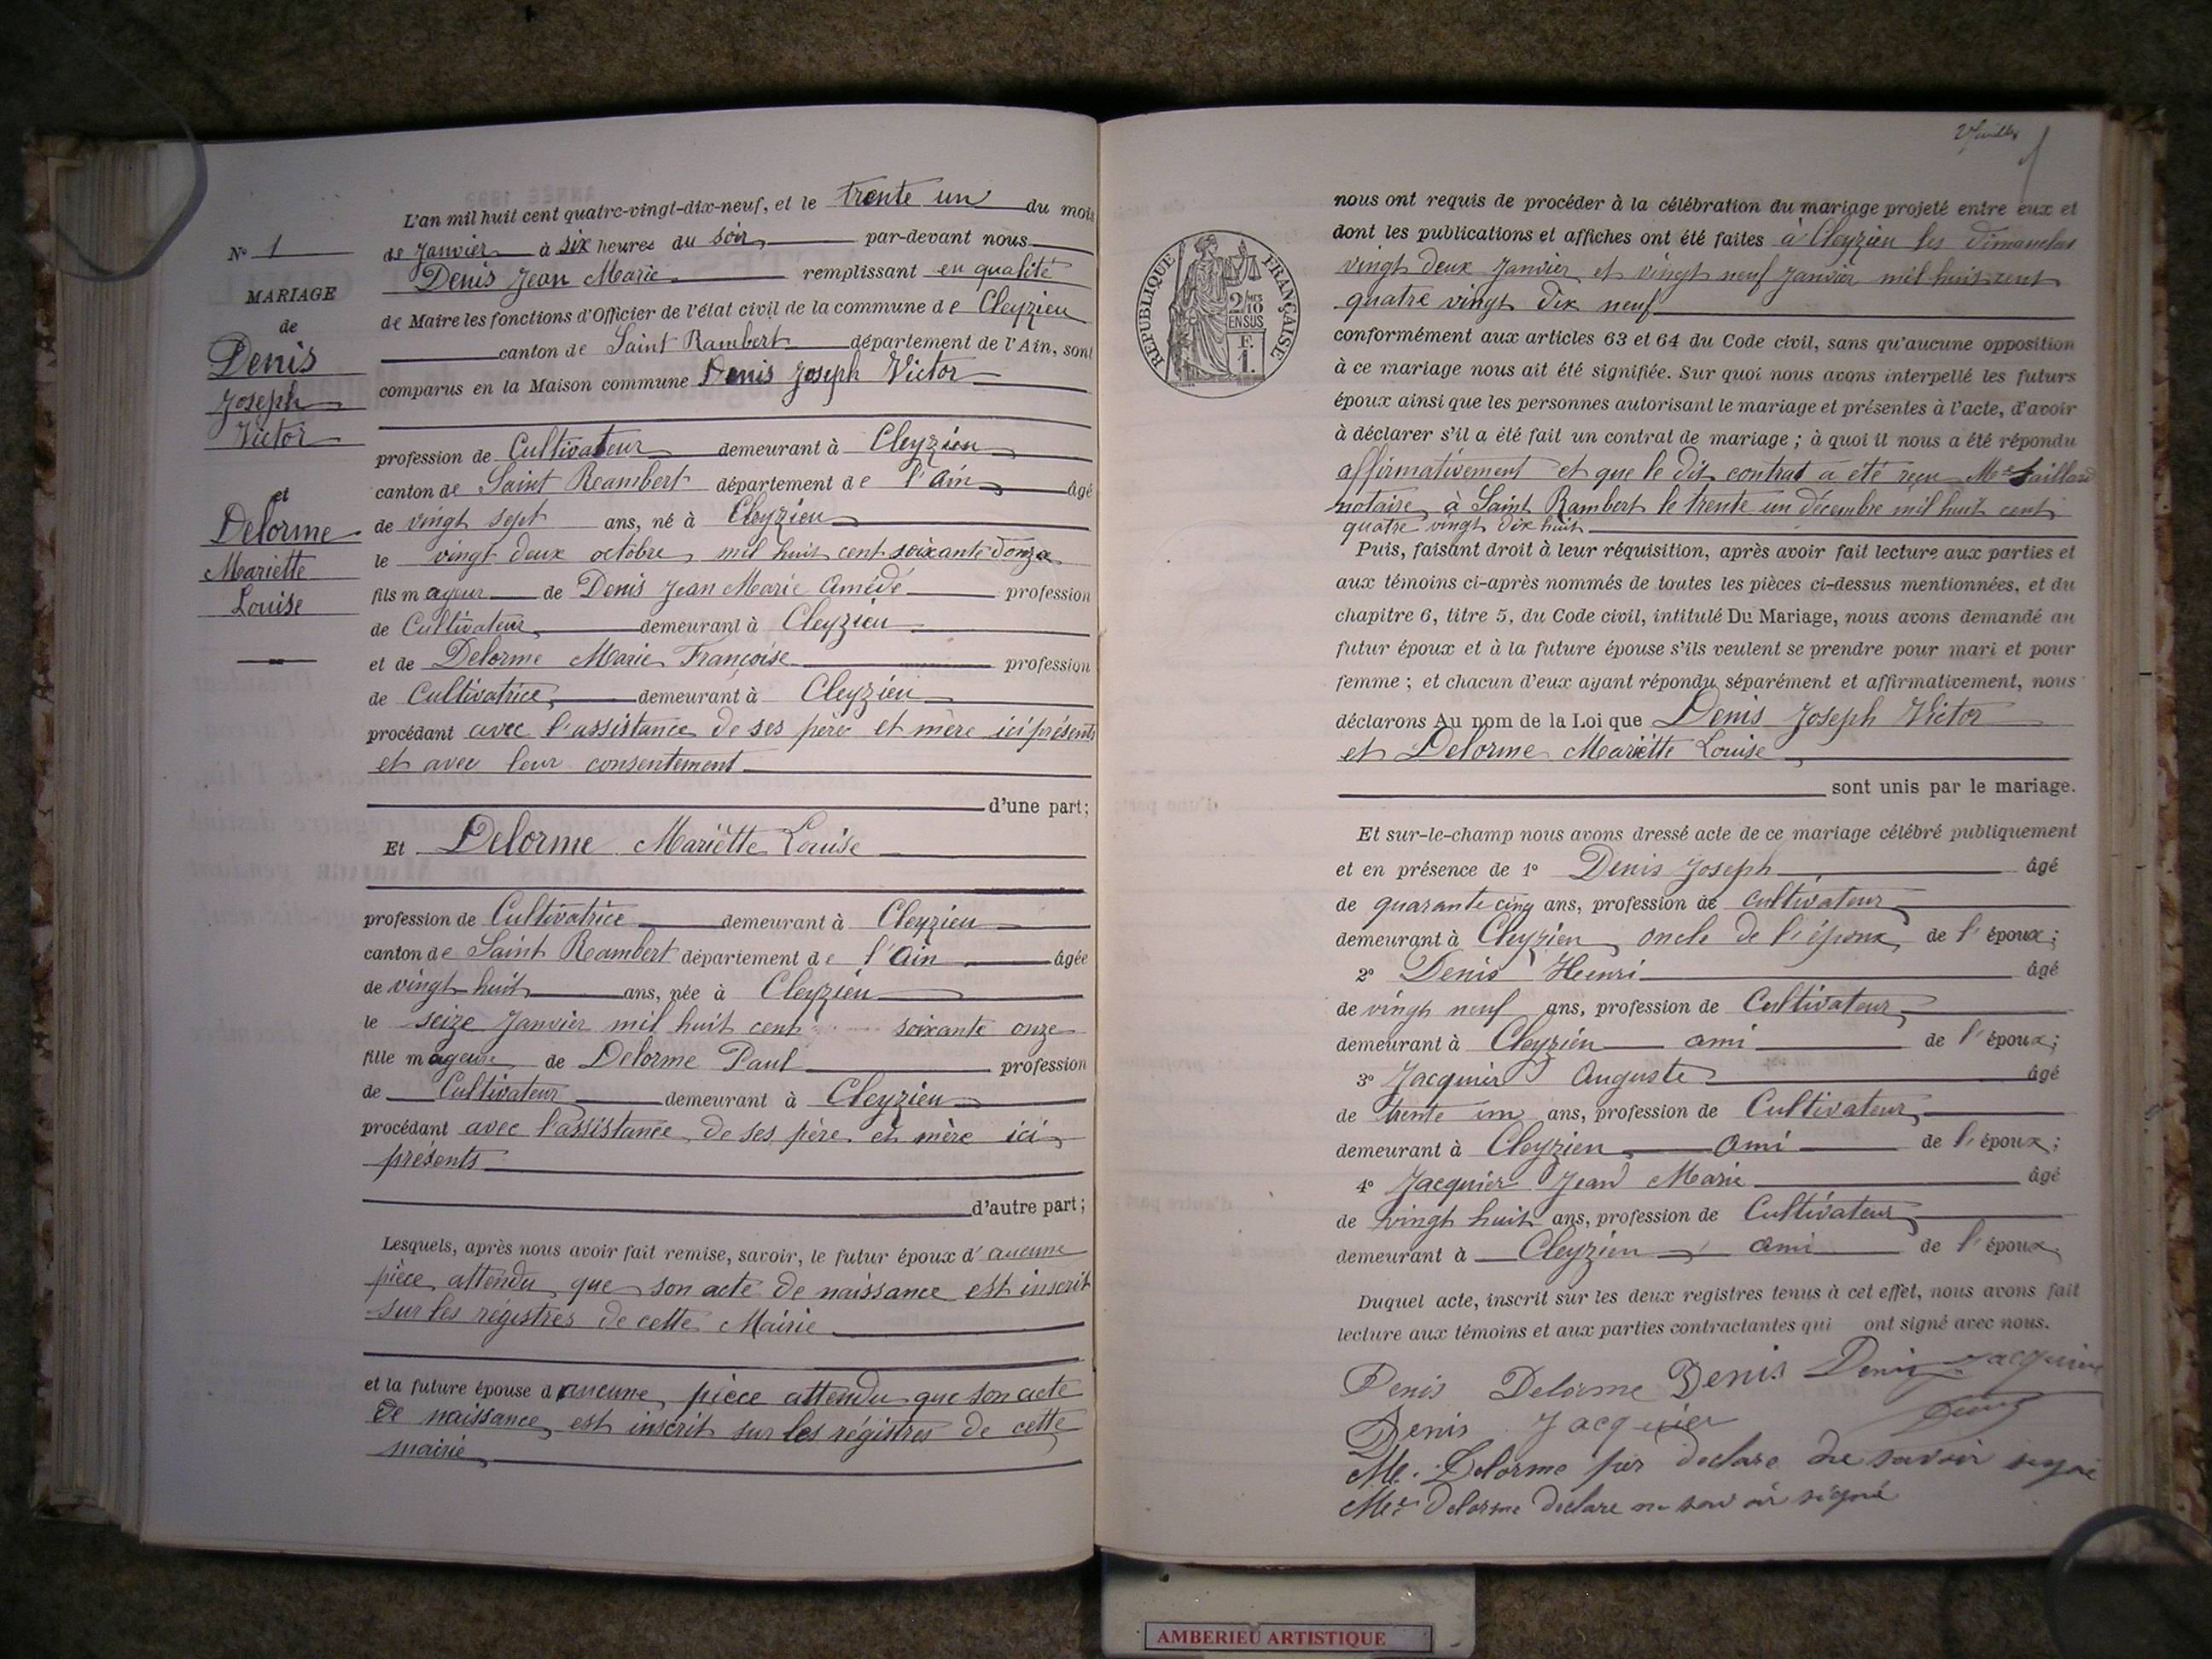 L'an mil huit cent quatre-vingt-dix-neuf, et le trente un du mois
de Janvier à six heures du soir par-devant nous
Denis Jean Marie remplissant en qualité
de Maire les fonctions d'Officier de l'état civil de la commune de Cleyzieu
canton de Saint Rambert département de l'Ain, sont
comparus en la Maison commune Denis Joseph Victor
profession de Cultivateur demeurant à Cleyzieu
canton de Saint Rambert département de l'Ain âgé
de vingt sept ans, né à Cleyzieu
le vingt deux octobre mil huit cent soixante donze
fils mageur de Denis Jean Marie Amédé profession
de Cultivateur demeurant à Cleyzieu
et de Delorme Marie Françoise profession
de Cultivatrice demeurant à Cleyzieu
procédant avec l'assistance de ses père et mère ici présents
et avec leur consentement
d'une part;
Et Delorme Mariette Louise
profession de Cultivatrice demeurant à Cleyzieu
canton de Saint Rambert département de l'Ain âgée
de vingt huit ans, née à Cleyzieu
le seize Janvier mil huit cent soixante onze
fille mageure de Delorme Paul profession
de Cultivateur demeurant à Cleyzieu
procédant avec l'assistance de ses père et mère ici
présents
d'autre part;
Lesquels, après nous avoir fait remise, savoir, le futur époux d'aucune
pièce attendu que son acte de naissance est inscrit
sur les régistres de cette Mairie
et la future épouse d'aucune pièce attendu que son acte
de naissance est inscrit sur les régistres de cette
mairie
N° 1
MARIAGE
de
Denis
Joseph
Victor
et
Delorme
Mariette
Louise
RÉPUBLIQUE FRANÇAISE
2/10
EN SUS
F.
1.
nous ont requis de procéder à la célébration du mariage projeté entre eux et
dont les publications et affiches ont été faites à Cleyzieu les dimanches
vingt deux Janvier et vingt neuf Janvier mil huit cent
quatre vingt dix neuf
conformément aux articles 63 et 64 du Code civil, sans qu'aucune opposition
à ce mariage nous ait été signifiée. Sur quoi nous avons interpellé les futurs
époux ainsi que les personnes autorisant le mariage et présentes à l'acte, d'avoir
à déclarer s'il a été fait un contrat de mariage; à quoi il nous a été répondu
affirmativement et que le dit contrat a été reçu Me
notaire à Saint Rambert le trente un décembre mil huit cent
quatre vingt dix huit
Puis, faisant droit à leur réquisition, après avoir fait lecture aux parties et
aux témoins ci-après nommés de toutes les pièces ci-dessus mentionnées, et du
chapitre 6, titre 5, du Code civil, intitulé Du Mariage, nous avons demandé au
futur époux et à la future épouse s'ils veulent se prendre pour mari et pour
femme; et chacun d'eux ayant répondu séparément et affirmativement, nous
déclarons Au nom de la Loi que Denis Joseph Victor
et Delorme Mariette Louise
sont unis par le mariage.
Et sur-le-champ nous avons dressé acte de ce mariage célébré publiquement
et en présence de 1° Denis Joseph âgé
de quarante cinq ans, profession de cultivateur
demeurant à Cleyzieu oncle de l'époux de l'époux;
2° Denis Henri âgé
de vingt neuf ans, profession de Cultivateur
demeurant à Cleyzieu ami de l'époux;
3° Jacquier Auguste âgé
de trente un ans, profession de Cultivateur
demeurant à Cleyzieu ami de l'époux;
4° Jacquier Jean Marie âgé
de vingt huit ans, profession de Cultivateur
demeurant à Cleyzieu ami de l'époux
Duquel acte, inscrit sur les deux registres tenus à cet effet, nous avons fait
lecture aux témoins et aux parties contractantes qui ont signé avec nous.
Denis Delorme Denis Denis Jacquier
Denis Jacquier
Me. Delorme père declare ne savoir signé
Me Delorme declare ne savoir signé
AMBERIEU ARTISTIQUE